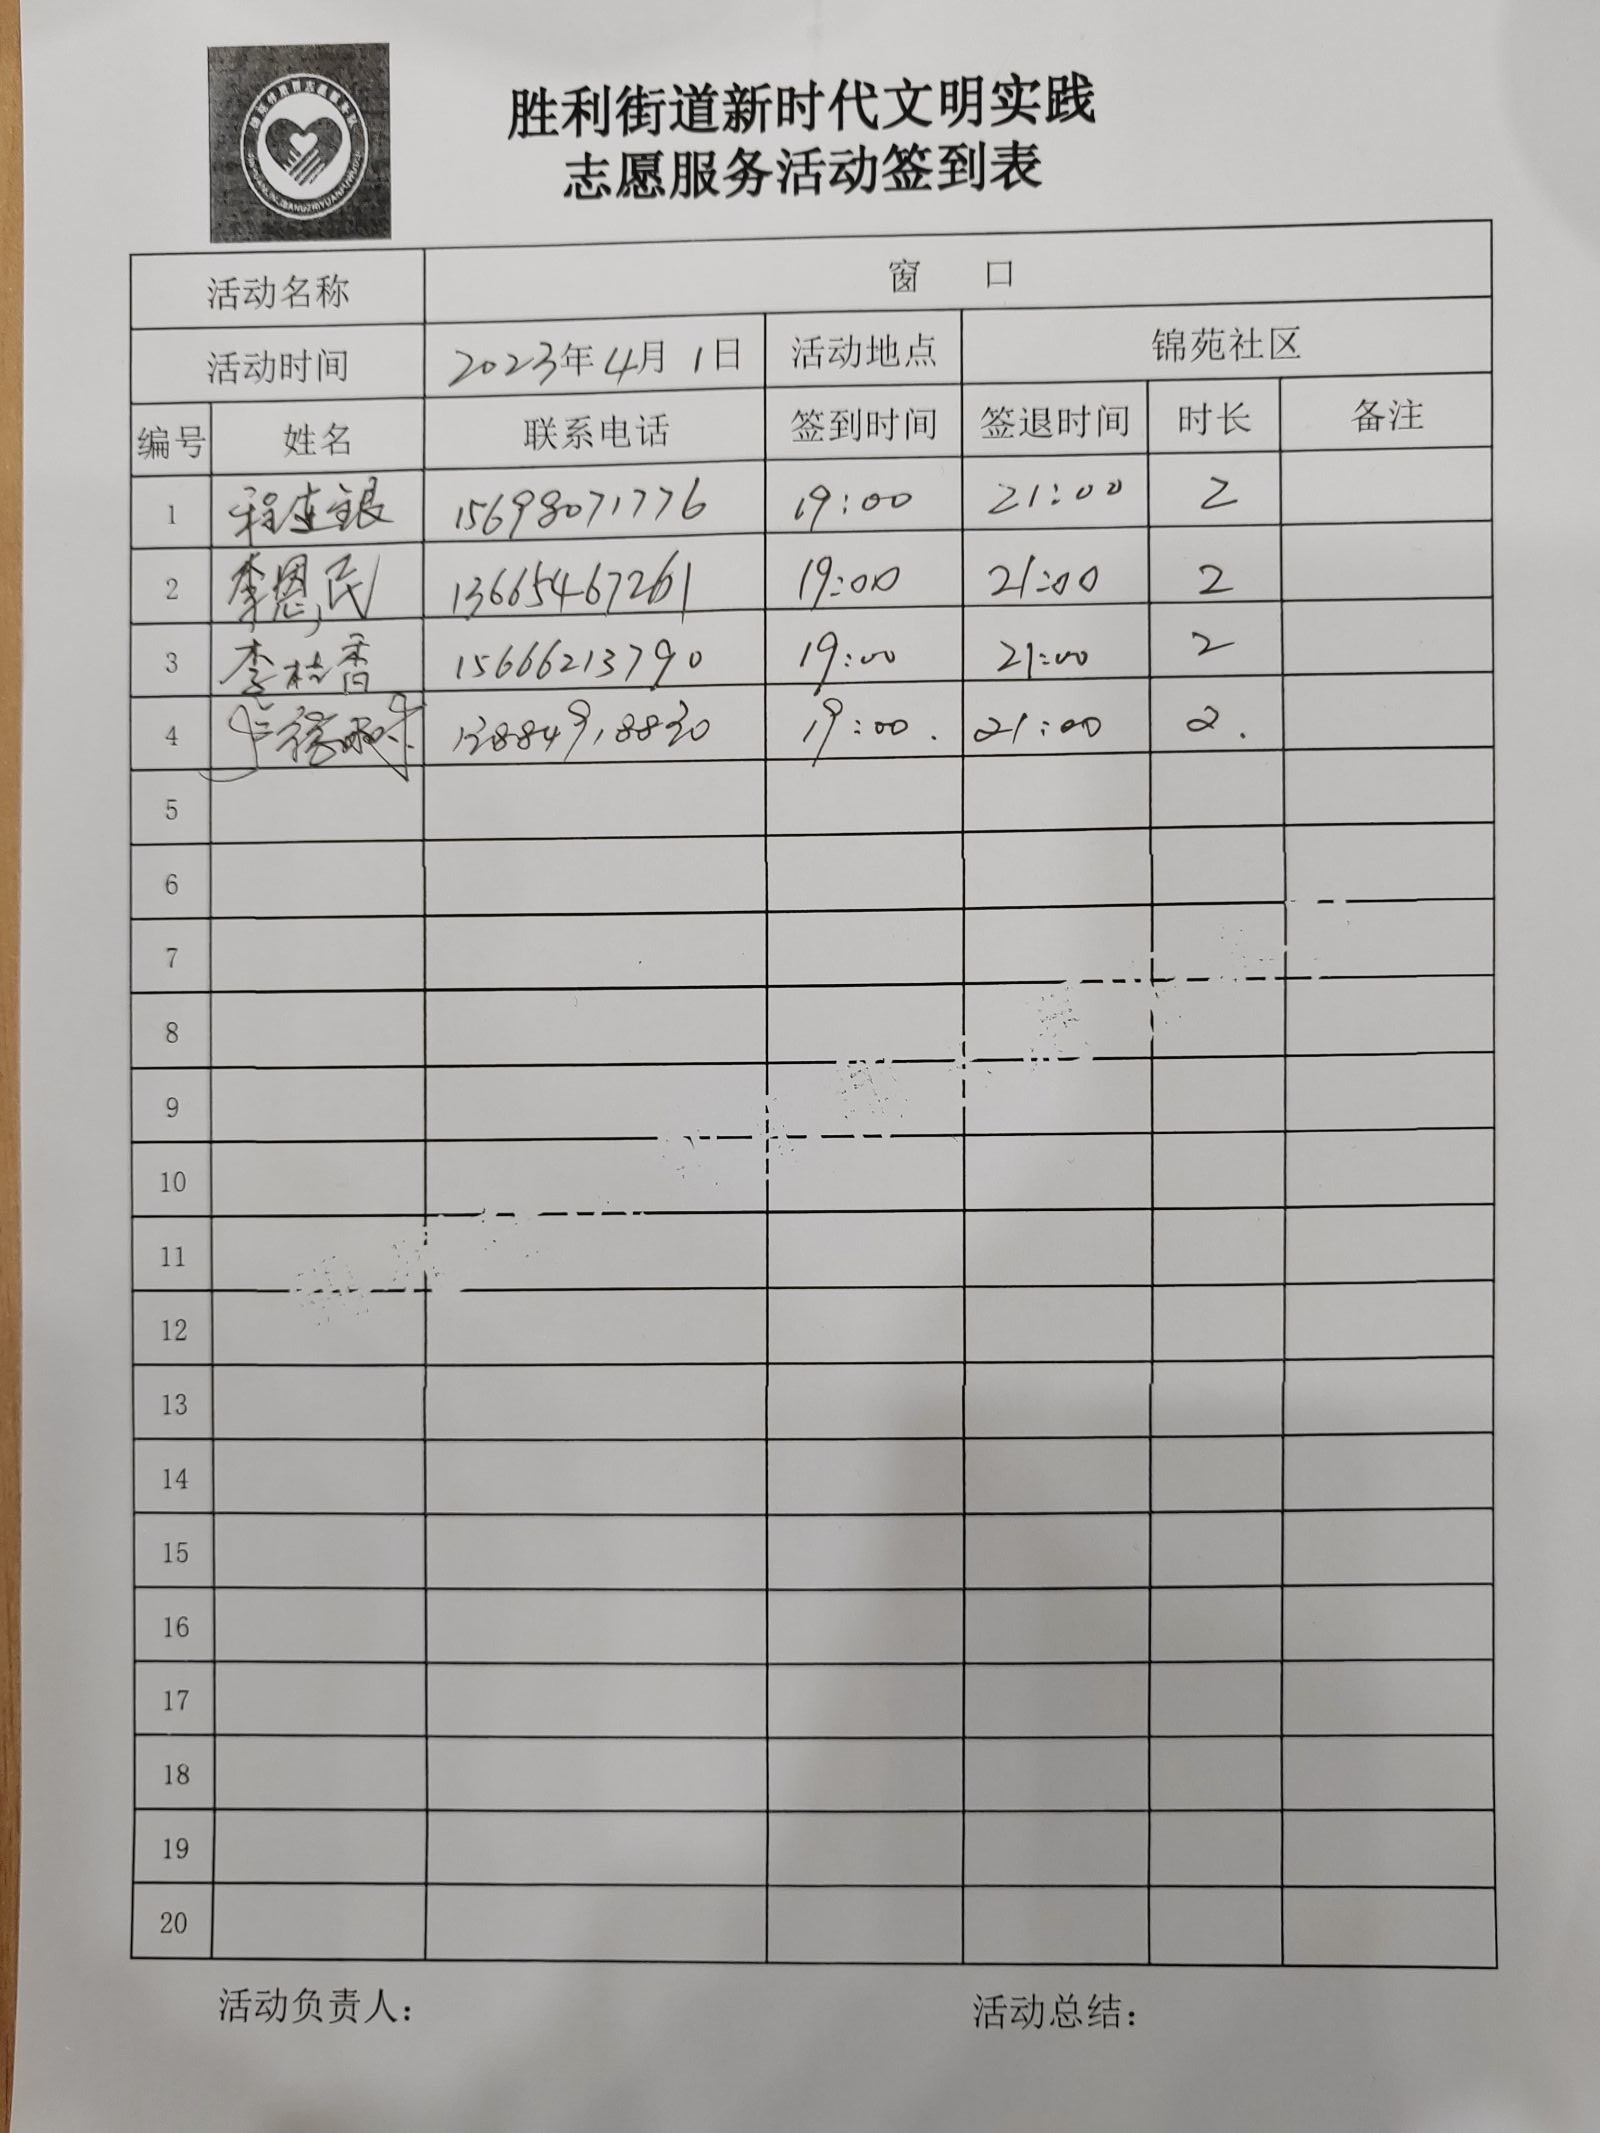 胜利街道新时代文明实践
志愿服务活动签到表
活动名称 窗 口
活动时间 2023年4月1日 活动地点 锦苑社区
编号 姓名 联系电话 签到时间 签退时间 时长 备注
1 程连银 15698071776 19:00 21:00 2
2 李恩民 13665467261 19:00 21:00 2
3 李桂香 15666213790 19:00 21:00 2
4 13884918830 19:00. 21:00 2.
5
6
7
8
9
10
11
12
13
14
15
16
17
18
19
20
活动负责人： 活动总结：